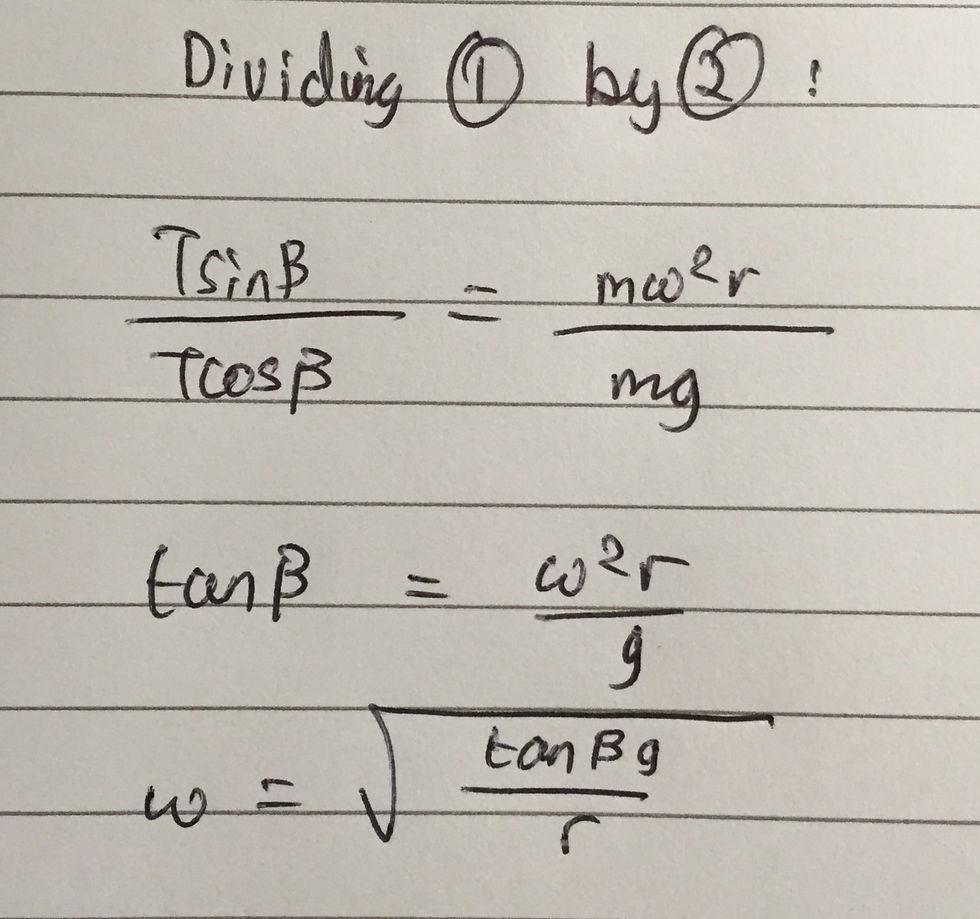 Dividing ① by ② :
Tsinβ / Tcosβ = mω²r / mg
tanβ = ω²r / g
ω = √(tanβg / r)